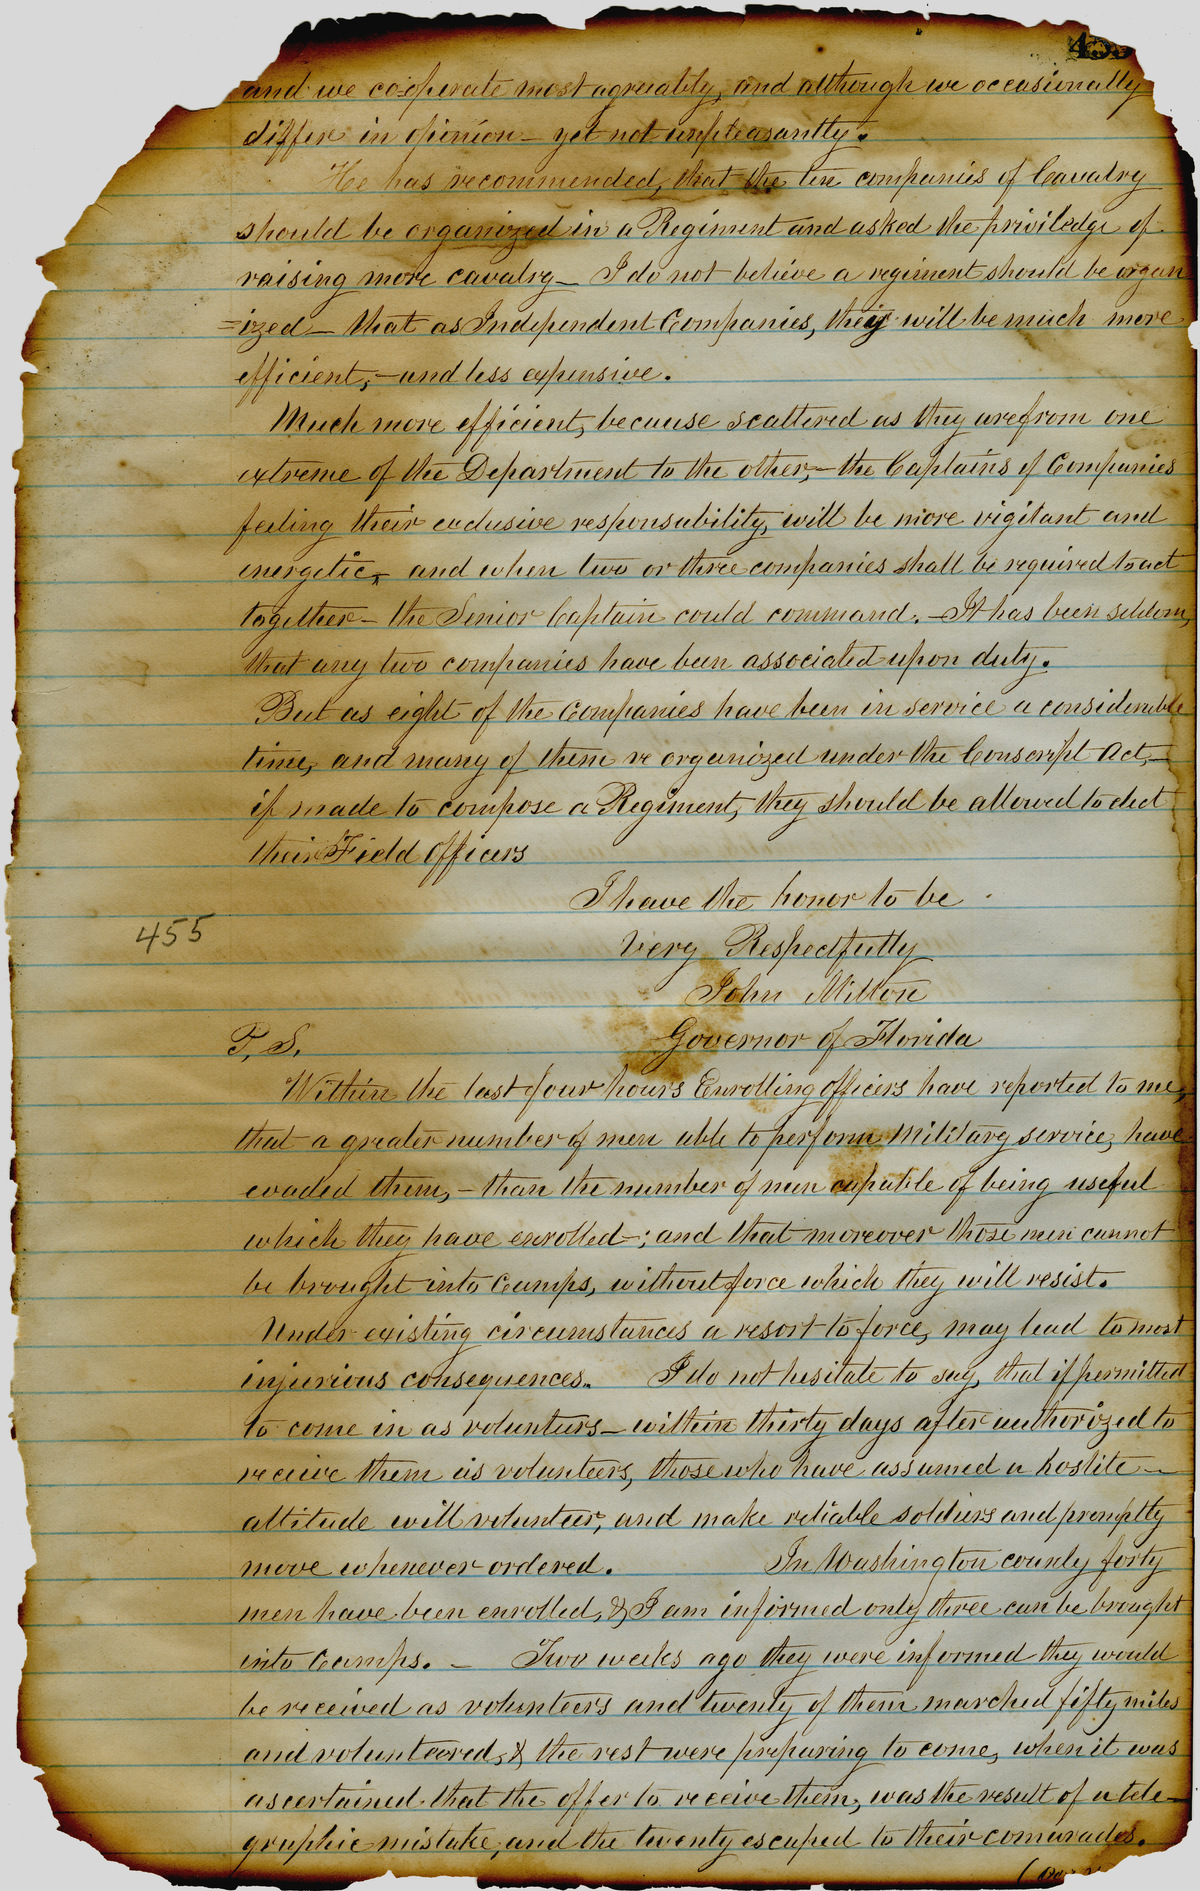 and we cooperate most agreeably, and although we occasionally
differ in opinion – yet not unpleasantly.
He has recommended, that the ten companies of Cavalry
should be organized in a Regiment and asked the priviledge of
raising more cavalry – I do not believe a regiment should be organ
=ized – that as Independent Companies, they will be much more
efficient, – and less expensive.
Much more efficient, because scattered as they are from one
extreme of the Department to the other, – the Captains of Companies
feeling their exclusive responsability, will be more vigilant and
energetic, and when two or three companies shall be required to act
together – the Senior Captain could command. – It has been seldom,
that any two companies have been associated upon duty.
But as eight of the Companies have been in service a considerable
time, and many of them re organized under the Conscript Act, –
if made to compose a Regiment, they should be allowed to elect
their Field officers
I have the honor to be
455
Very Respectfully
John Milton
P. S.
Governor of Florida
Within the last four hours Enrolling officers have reported to me,
that a greater number of men able to perform Military service, have
evaded them, – than the number of men capable of being useful
which they have enrolled – ; and that moreover those men cannot
be brought into Camps, without force which they will resist.
Under existing circumstances a resort to force, may lead to most
injurious consequences. I do not hesitate to say, that if permitted
to come in as volunteers – within thirty days after authorized to
receive them as volunteers, those who have assumed a hostile –
attitude will volunteer, and make reliable soldiers and promptly
move whenever ordered. In Washington county forty
men have been enrolled, & I am informed only three can be brought
into Camps. – Two weeks ago they were informed they would
be received as volunteers and twenty of them marched fifty miles
and volunteered, & the rest were preparing to come, when it was
ascertained that the offer to receive them, was the result of a tele –
graphic mistake, and the twenty escaped to their comarades.